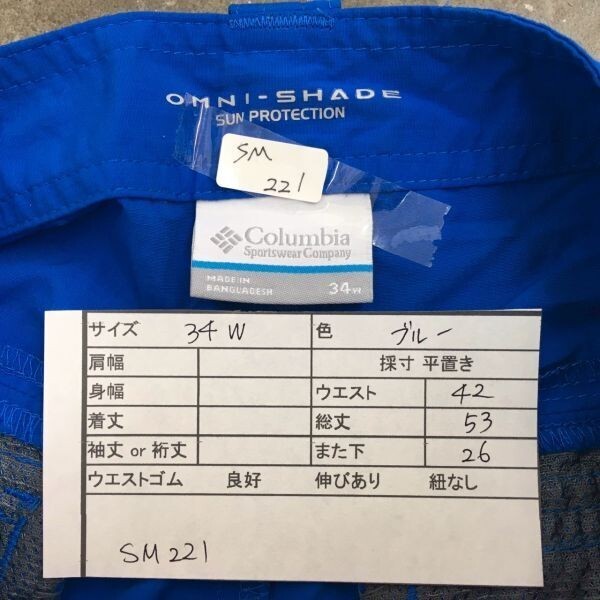 OMNI-SHADE
SUN PROTECTION
SM
221
Columbia
Sportswear Company
MADE IN
BANGLADESH
34W
サイズ 34W 色 ブルー
肩幅 採寸 平置き
身幅 ウエスト 42
着丈 総丈 53
袖丈 or 裄丈 また下 26
ウエストゴム 良好 伸びあり 紐なし
SM221